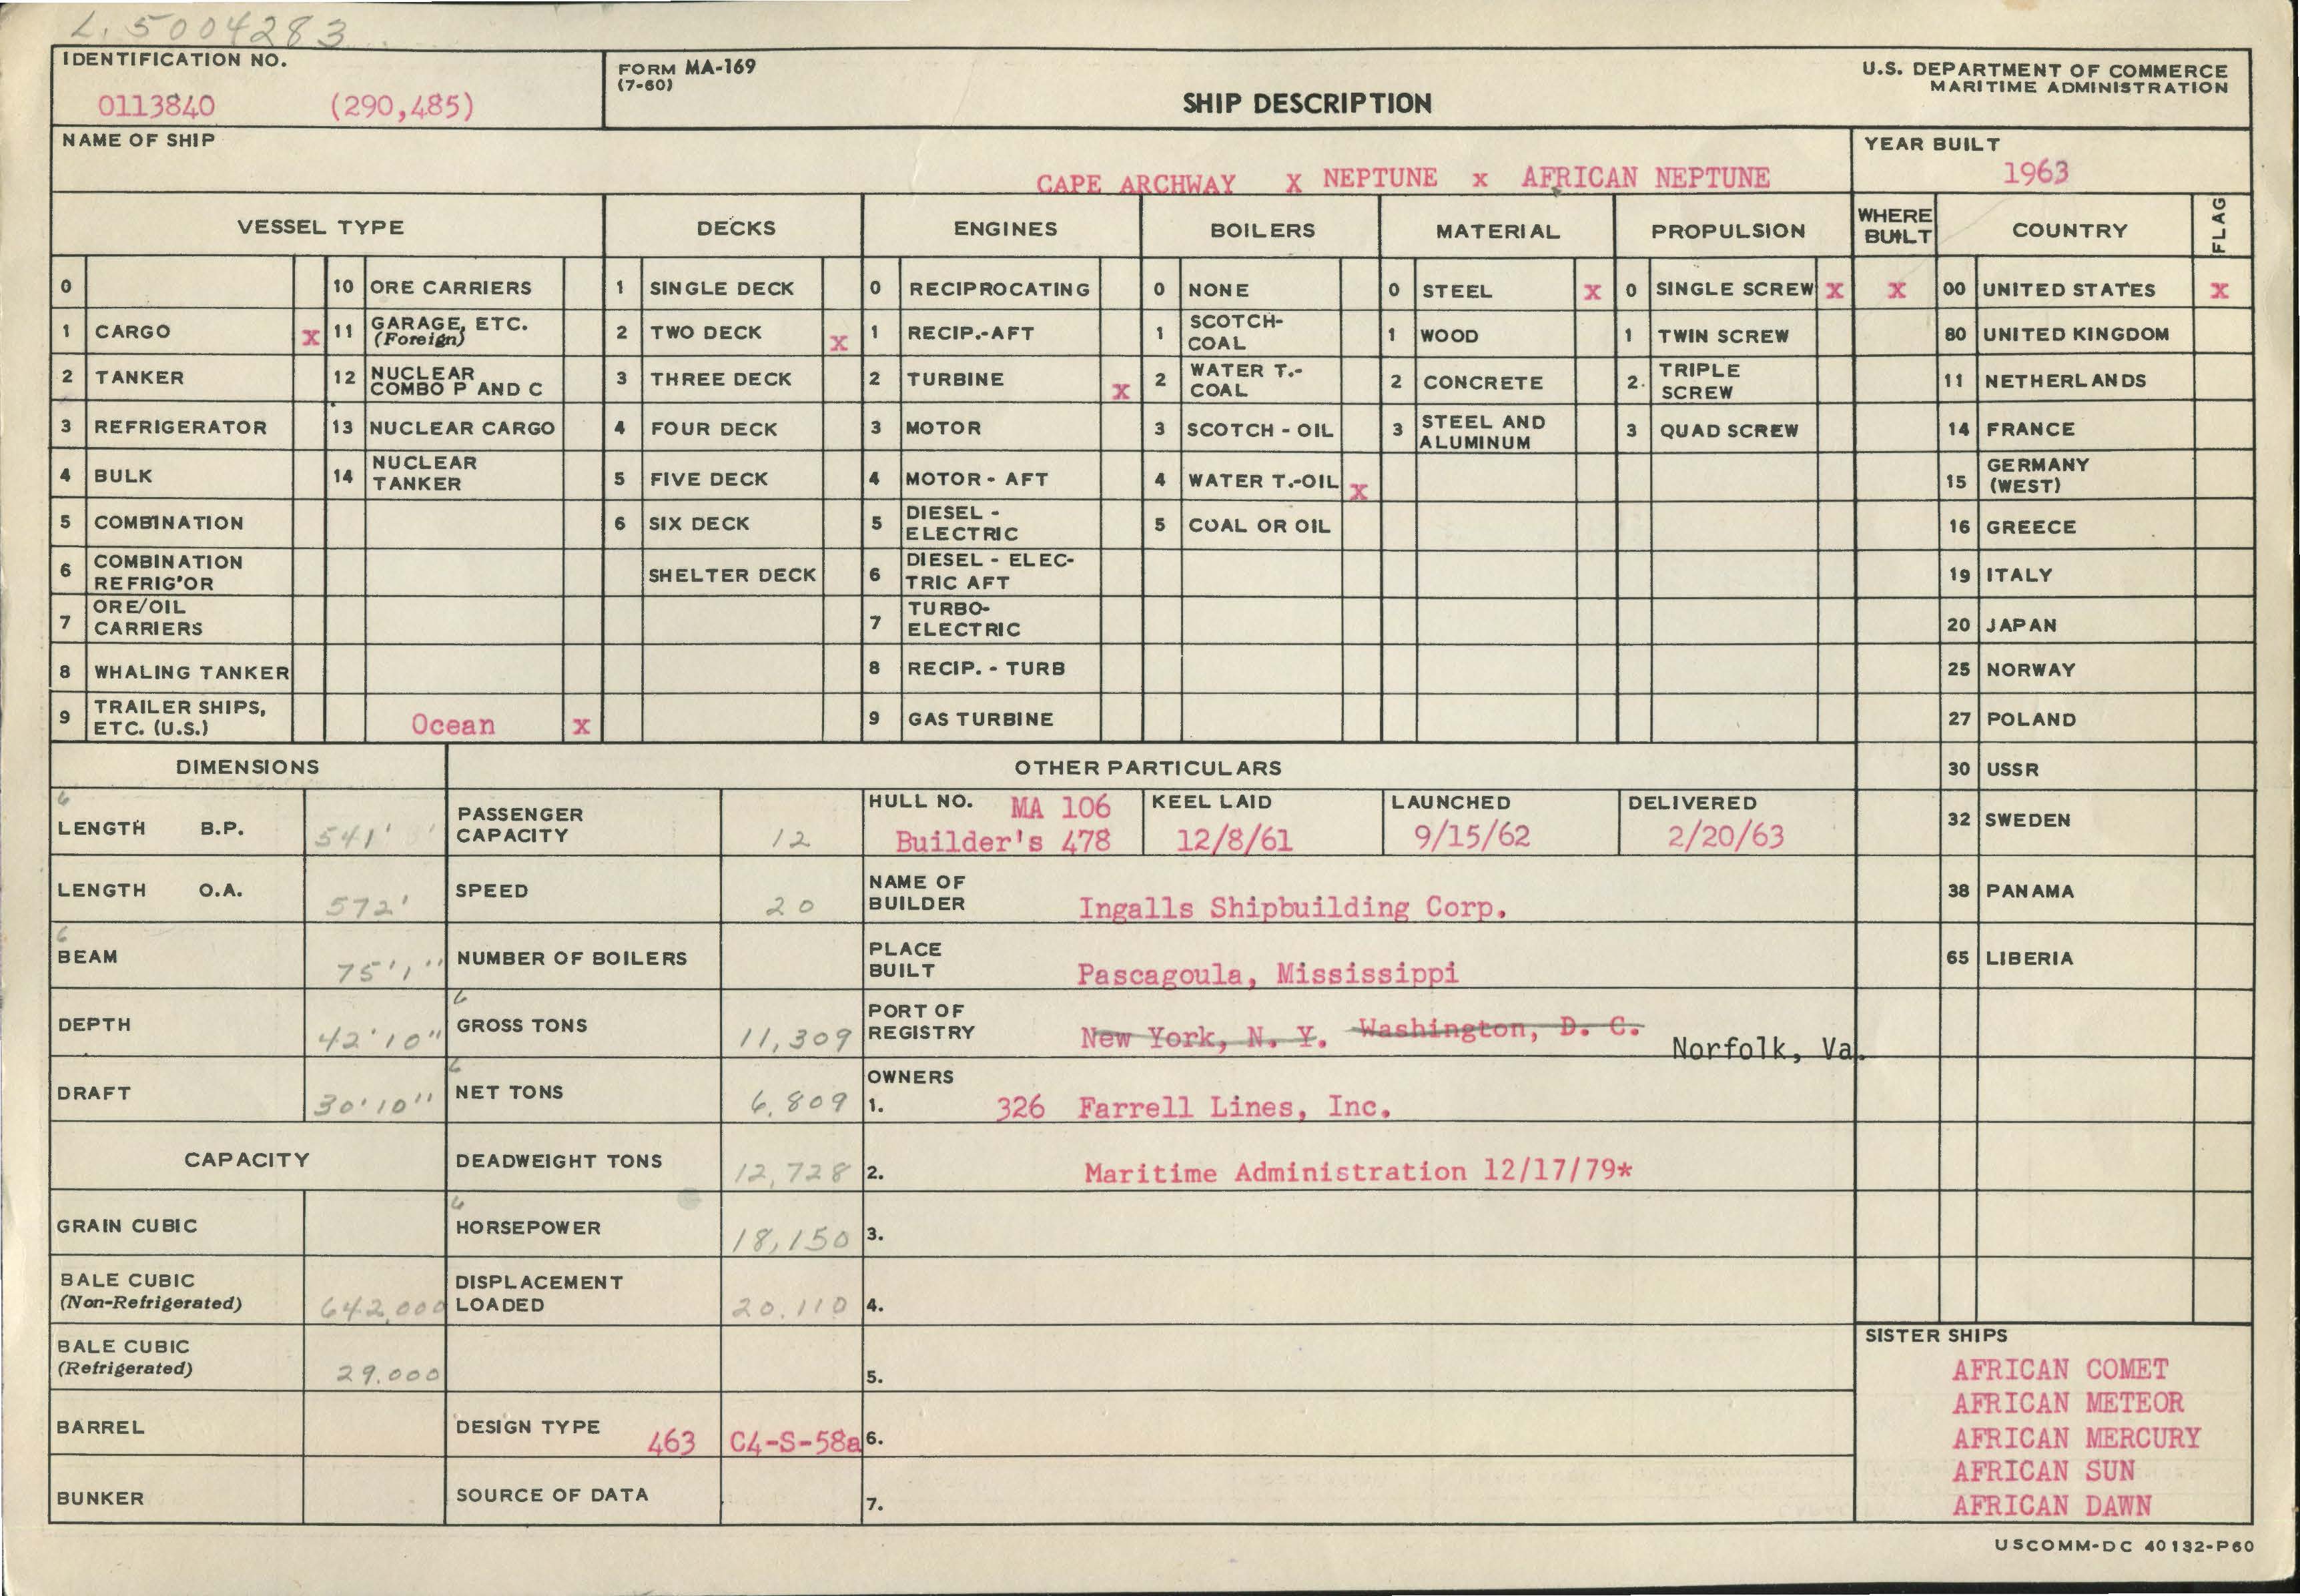 L. 5004283
IDENTIFICATION NO.
0113840 (290,485)
FORM MA-169
(7-60)
SHIP DESCRIPTION
U.S. DEPARTMENT OF COMMERCE
MARITIME ADMINISTRATION
NAME OF SHIP
CAPE ARCHWAY X NEPTUNE x AFRICAN NEPTUNE
YEAR BUILT
1963
VESSEL TYPE DECKS ENGINES BOILERS MATERIAL PROPULSION WHERE BUILT COUNTRY FLAG
0 10 ORE CARRIERS 1 SINGLE DECK 0 RECIPROCATING 0 NONE 0 STEEL x 0 SINGLE SCREW x x 00 UNITED STATES x
1 CARGO x 11 GARAGE, ETC. (Foreign) 2 TWO DECK x 1 RECIP.-AFT 1 SCOTCH-COAL 1 WOOD 1 TWIN SCREW 80 UNITED KINGDOM
2 TANKER 12 NUCLEAR COMBO P AND C 3 THREE DECK 2 TURBINE x 2 WATER T.-COAL 2 CONCRETE 2. TRIPLE SCREW 11 NETHERLANDS
3 REFRIGERATOR 13 NUCLEAR CARGO 4 FOUR DECK 3 MOTOR 3 SCOTCH - OIL 3 STEEL AND ALUMINUM 3 QUAD SCREW 14 FRANCE
4 BULK 14 NUCLEAR TANKER 5 FIVE DECK 4 MOTOR - AFT 4 WATER T.-OIL x 15 GERMANY (WEST)
5 COMBINATION 6 SIX DECK 5 DIESEL - ELECTRIC 5 COAL OR OIL 16 GREECE
6 COMBINATION REFRIG'OR SHELTER DECK 6 DIESEL - ELEC-TRIC AFT 19 ITALY
7 ORE/OIL CARRIERS 7 TURBO-ELECTRIC 20 JAPAN
8 WHALING TANKER 8 RECIP. - TURB 25 NORWAY
9 TRAILER SHIPS, ETC. (U.S.) Ocean x 9 GAS TURBINE 27 POLAND
DIMENSIONS OTHER PARTICULARS 30 USSR
6
LENGTH B.P. 541' PASSENGER CAPACITY 12 HULL NO. MA 106 Builder's 478 KEEL LAID 12/8/61 LAUNCHED 9/15/62 DELIVERED 2/20/63 32 SWEDEN
LENGTH O.A. 572' SPEED 20 NAME OF BUILDER Ingalls Shipbuilding Corp. 38 PANAMA
6
BEAM 75'1" NUMBER OF BOILERS PLACE BUILT Pascagoula, Mississippi 65 LIBERIA
DEPTH 42'10" 6 GROSS TONS 11,309 PORT OF REGISTRY New York, N. Y. Washington, D. C. Norfolk, Va.
DRAFT 30'10" 6 NET TONS 6,809 OWNERS 1. 326 Farrell Lines, Inc.
CAPACITY DEADWEIGHT TONS 12,728 2. Maritime Administration 12/17/79*
GRAIN CUBIC 6 HORSEPOWER 18,150 3.
BALE CUBIC (Non-Refrigerated) 642,000 DISPLACEMENT LOADED 20,110 4.
BALE CUBIC (Refrigerated) 29,000 5.
BARREL DESIGN TYPE 463 C4-S-58a 6.
BUNKER SOURCE OF DATA 7.
SISTER SHIPS
AFRICAN COMET
AFRICAN METEOR
AFRICAN MERCURY
AFRICAN SUN
AFRICAN DAWN
USCOMM-DC 40132-P60